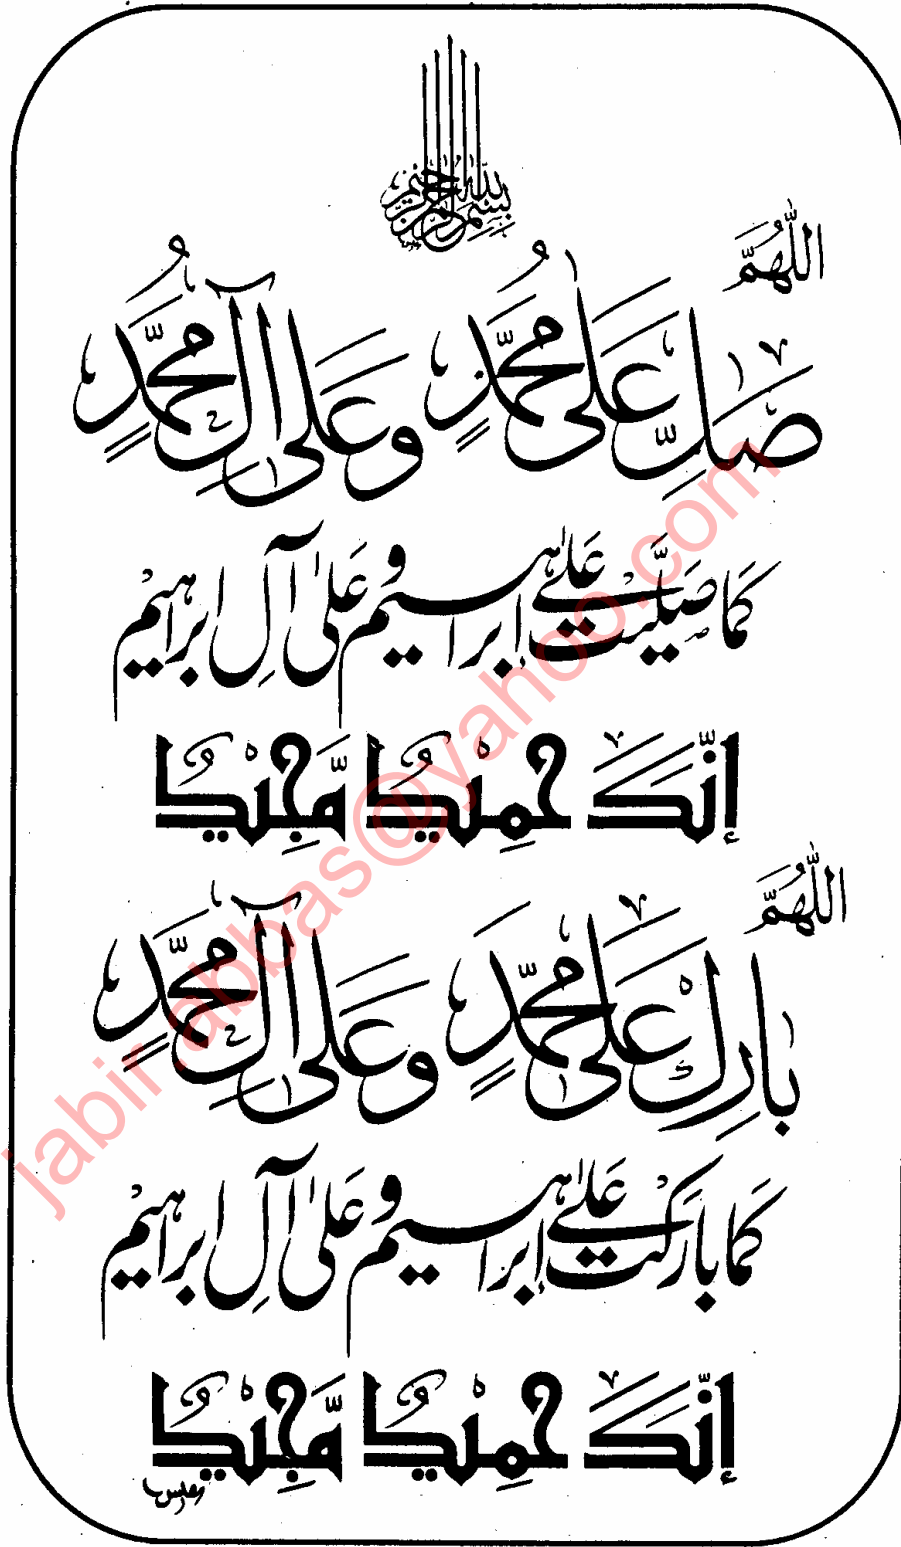 بسم الله الرحمن الرحيم
اللّٰهُمَّ
صَلِّ عَلٰى مُحَمَّدٍ وَعَلٰى آلِ مُحَمَّدٍ
كَمَا صَلَّيْتَ عَلٰى إبراهيم وعَلىٰ آلِ ابراهيم
إنَّكَ حَمِيْدٌ مَّجِيْدٌ
اللّٰهُمَّ
بَارِكْ عَلٰى مُحَمَّدٍ وَعَلٰى آلِ مُحَمَّدٍ
كَمَا بَارَكْتَ عَلٰى إبراهيم وعَلىٰ آلِ ابراهيم
إنَّكَ حَمِيْدٌ مَّجِيْدٌ
jabir.abbas@yahoo.com